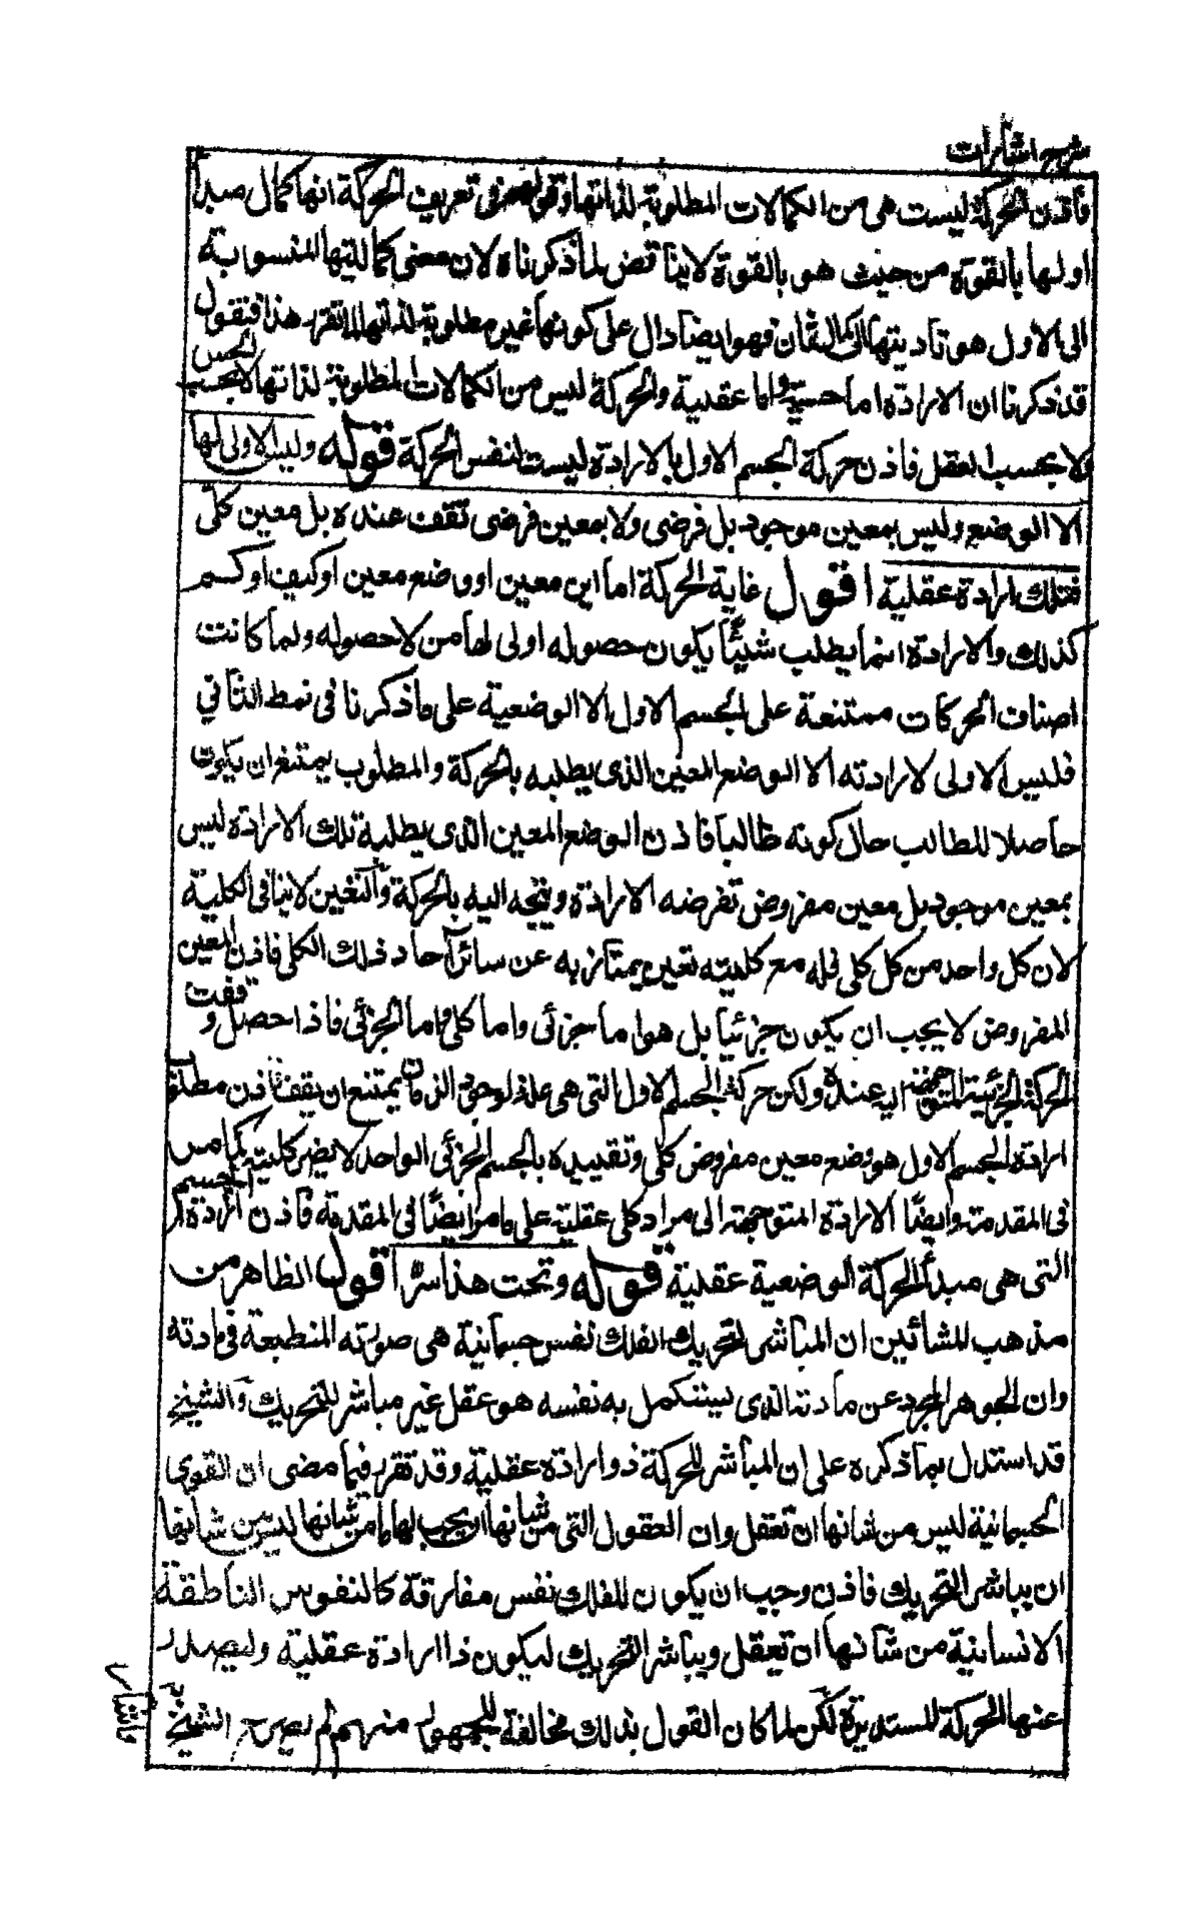 شرح اشارات
فاذن الحركة ليست هى من الكمالات المطلوبة لذاتها وقولهم فى تعريف الحركة انها كمال مبدأ
اولها بالقوة من حيث هو بالقوة لا يناقض لما ذكرناه لان معنى كماليتها المنسوبة
الى الاول هو تاديتها الى كمال ثان فهو ايضا دال على كونها غير مطلوبة لذاتها لما تقرر هذا فنقول
قد ذكرنا ان الارادة اما حسية واما عقلية والحركة ليس من الكمالات المطلوبة لذاتها لا بحسب الحس
ولا بحسب العقل فاذن حركة الجسم الاول بالارادة ليست لنفس الحركة قوله وليس الاولى لها
الا الوضع وليس بمعين موجود بل فرضى ولا بمعين فرضى تقف عنده بل معين كلى
فتلك ارادة عقلية اقول غاية الحركة اما اين معين او وضع معين او كيف او كم
كذلك والارادة انما يطلب شيئا يكون حصوله اولى لها من لا حصوله ولما كانت
اصناف الحركات ممتنعة على الجسم الاول الا الوضعية على ما ذكرنا فى نمط الثاني
فليس الاولى لارادته الا الوضع المعين الذى يطلبه بالحركة والمطلوب يمتنع ان يكون
حاصلا للطالب حال كونه طالبا فاذن الوضع المعين الذى يطلبه تلك الارادة ليس
بمعين موجود بل معين مفروض تفرضه الارادة ويتجه اليه بالحركة والتعين لا ينافى الكلية
لان كل واحد من كل كلى فله مع كليته تعين يمتاز به عن سائر آحاد ذلك الكلى فاذن المعين
المفروض لا يجب ان يكون جزئيا بل هو اما جزئى واما كلى واما الجزئى فاذا حصل وقفت
الحركة الجزئية المتوجهة اليه عنده ولكن حركة الجسم الاول التى هى علة لوجود الزمان يمتنع ان يقف فاذن مطلوب
ارادة الجسم الاول هو وضع معين مفروض كلى وتقييده بالجسم الجزئى الواحد لا يضر كليته كما مر
فى المقدمة وايضا الارادة المتوجهة الى مراد كلى عقلية على ما مر ايضا فى المقدمة فاذن ارادة الجسم
التى هى مبدأ الحركة الوضعية عقلية قوله وتحت هذا سر اقول الظاهر من
مذهب المشائين ان المباشر لتحريك الفلك نفس جسمانية هى صورته المنطبعة فى مادته
وان الجوهر المجرد عن مادته الذى يستكمل به نفسه هو عقل غير مباشر للتحريك والشيخ
قد استدل بما ذكره على ان المباشر للحركة ذو ارادة عقلية وقد تقرر فيما مضى ان القوى
الجسمانية ليس من شانها ان تعقل وان العقول التى من شانها ان يجب لها ما من شانها ليس من شانها
ان يباشر التحريك فاذن وجب ان يكون للفلك نفس مفارقة كالنفوس الناطقة
الانسانية من شانها ان تعقل ويباشر التحريك ليكون ذا ارادة عقلية وليصدر
عنها الحركة المستديرة لكن لما كان القول بذلك مخالفة للجمهور منهم لم يصرح الشيخ